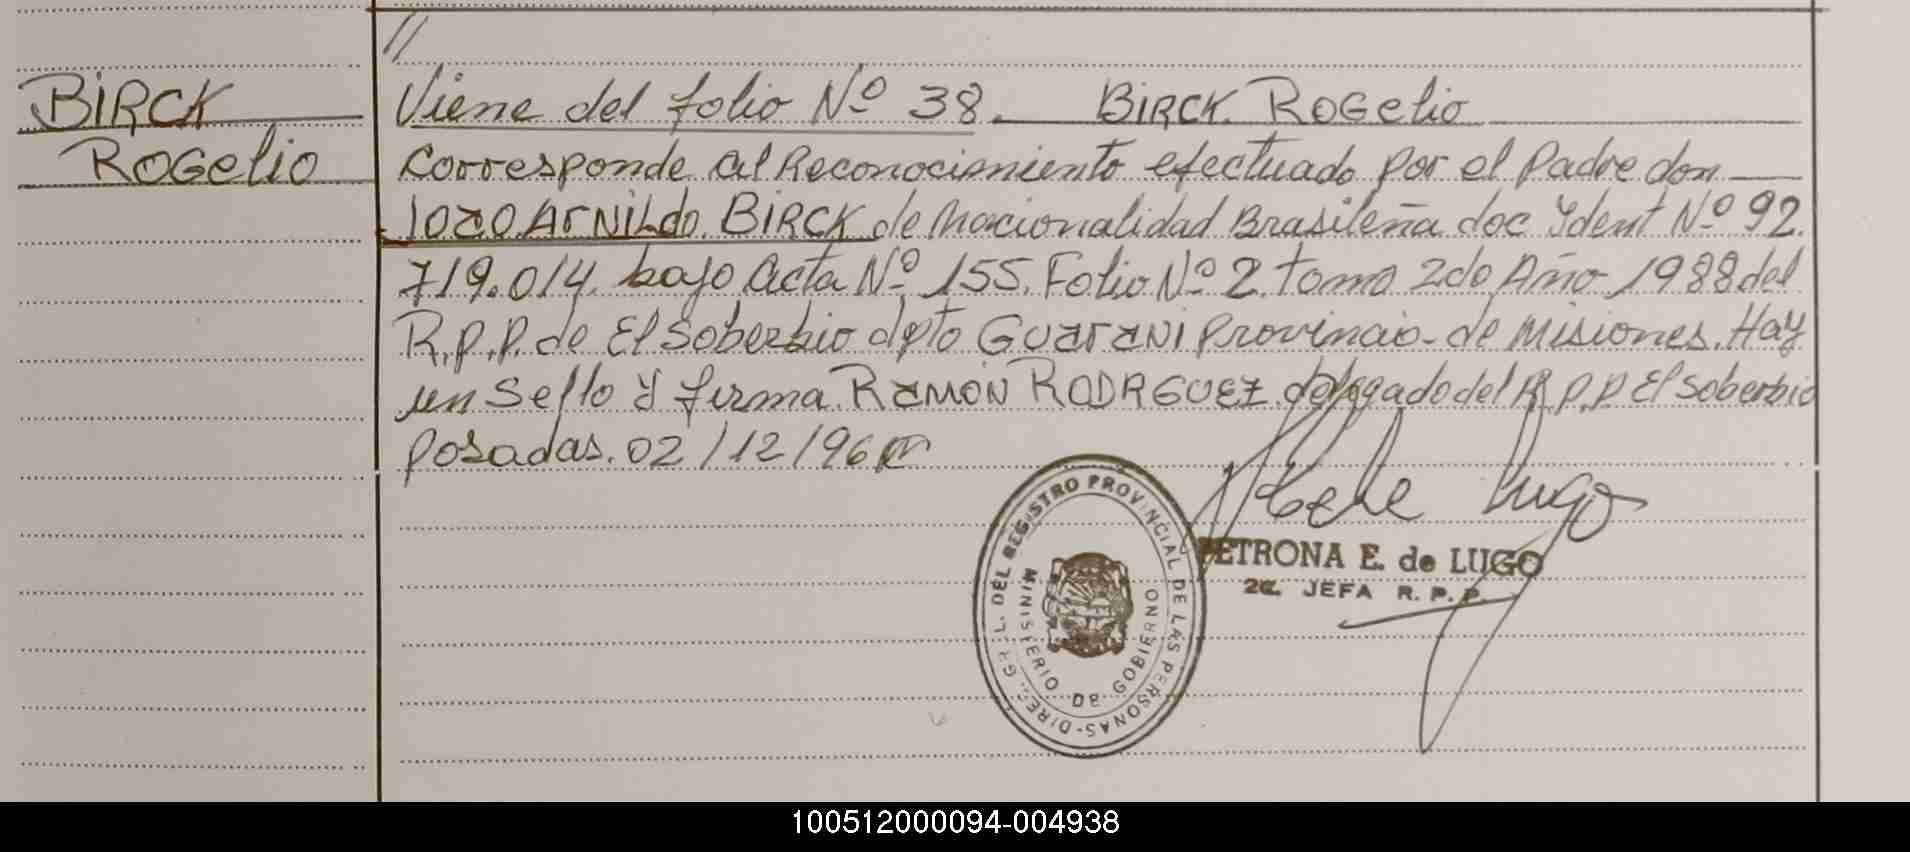 //
BIRCK
ROGelio
Viene del folio Nº 38. BIRCK. ROGelio
Corresponde al Reconocimiento efectuado por el Padre don
JOaO. ArNILdo. BIRCK de Nacionalidad Brasileña doc Ydent Nº 92.
719.014. bajo Acta Nº 155. Folio Nº 2. tomo 2do Año 1988 del
R.P.P. de El Soberbio dpto GUaraNI Provincia de Misiones. Hay
un Sello Y firma RaMON RODRGUEZ delegado del R.P.P El Soberbio
Posadas. 02/12/96
Lugo
PETRONA E. de LUGO
2a. JEFA R. P. P.
DIREC. GRL. DEL REGISTRO PROVINCIAL DE LAS PERSONAS-
MINISTERIO DE GOBIERNO
100512000094-004938